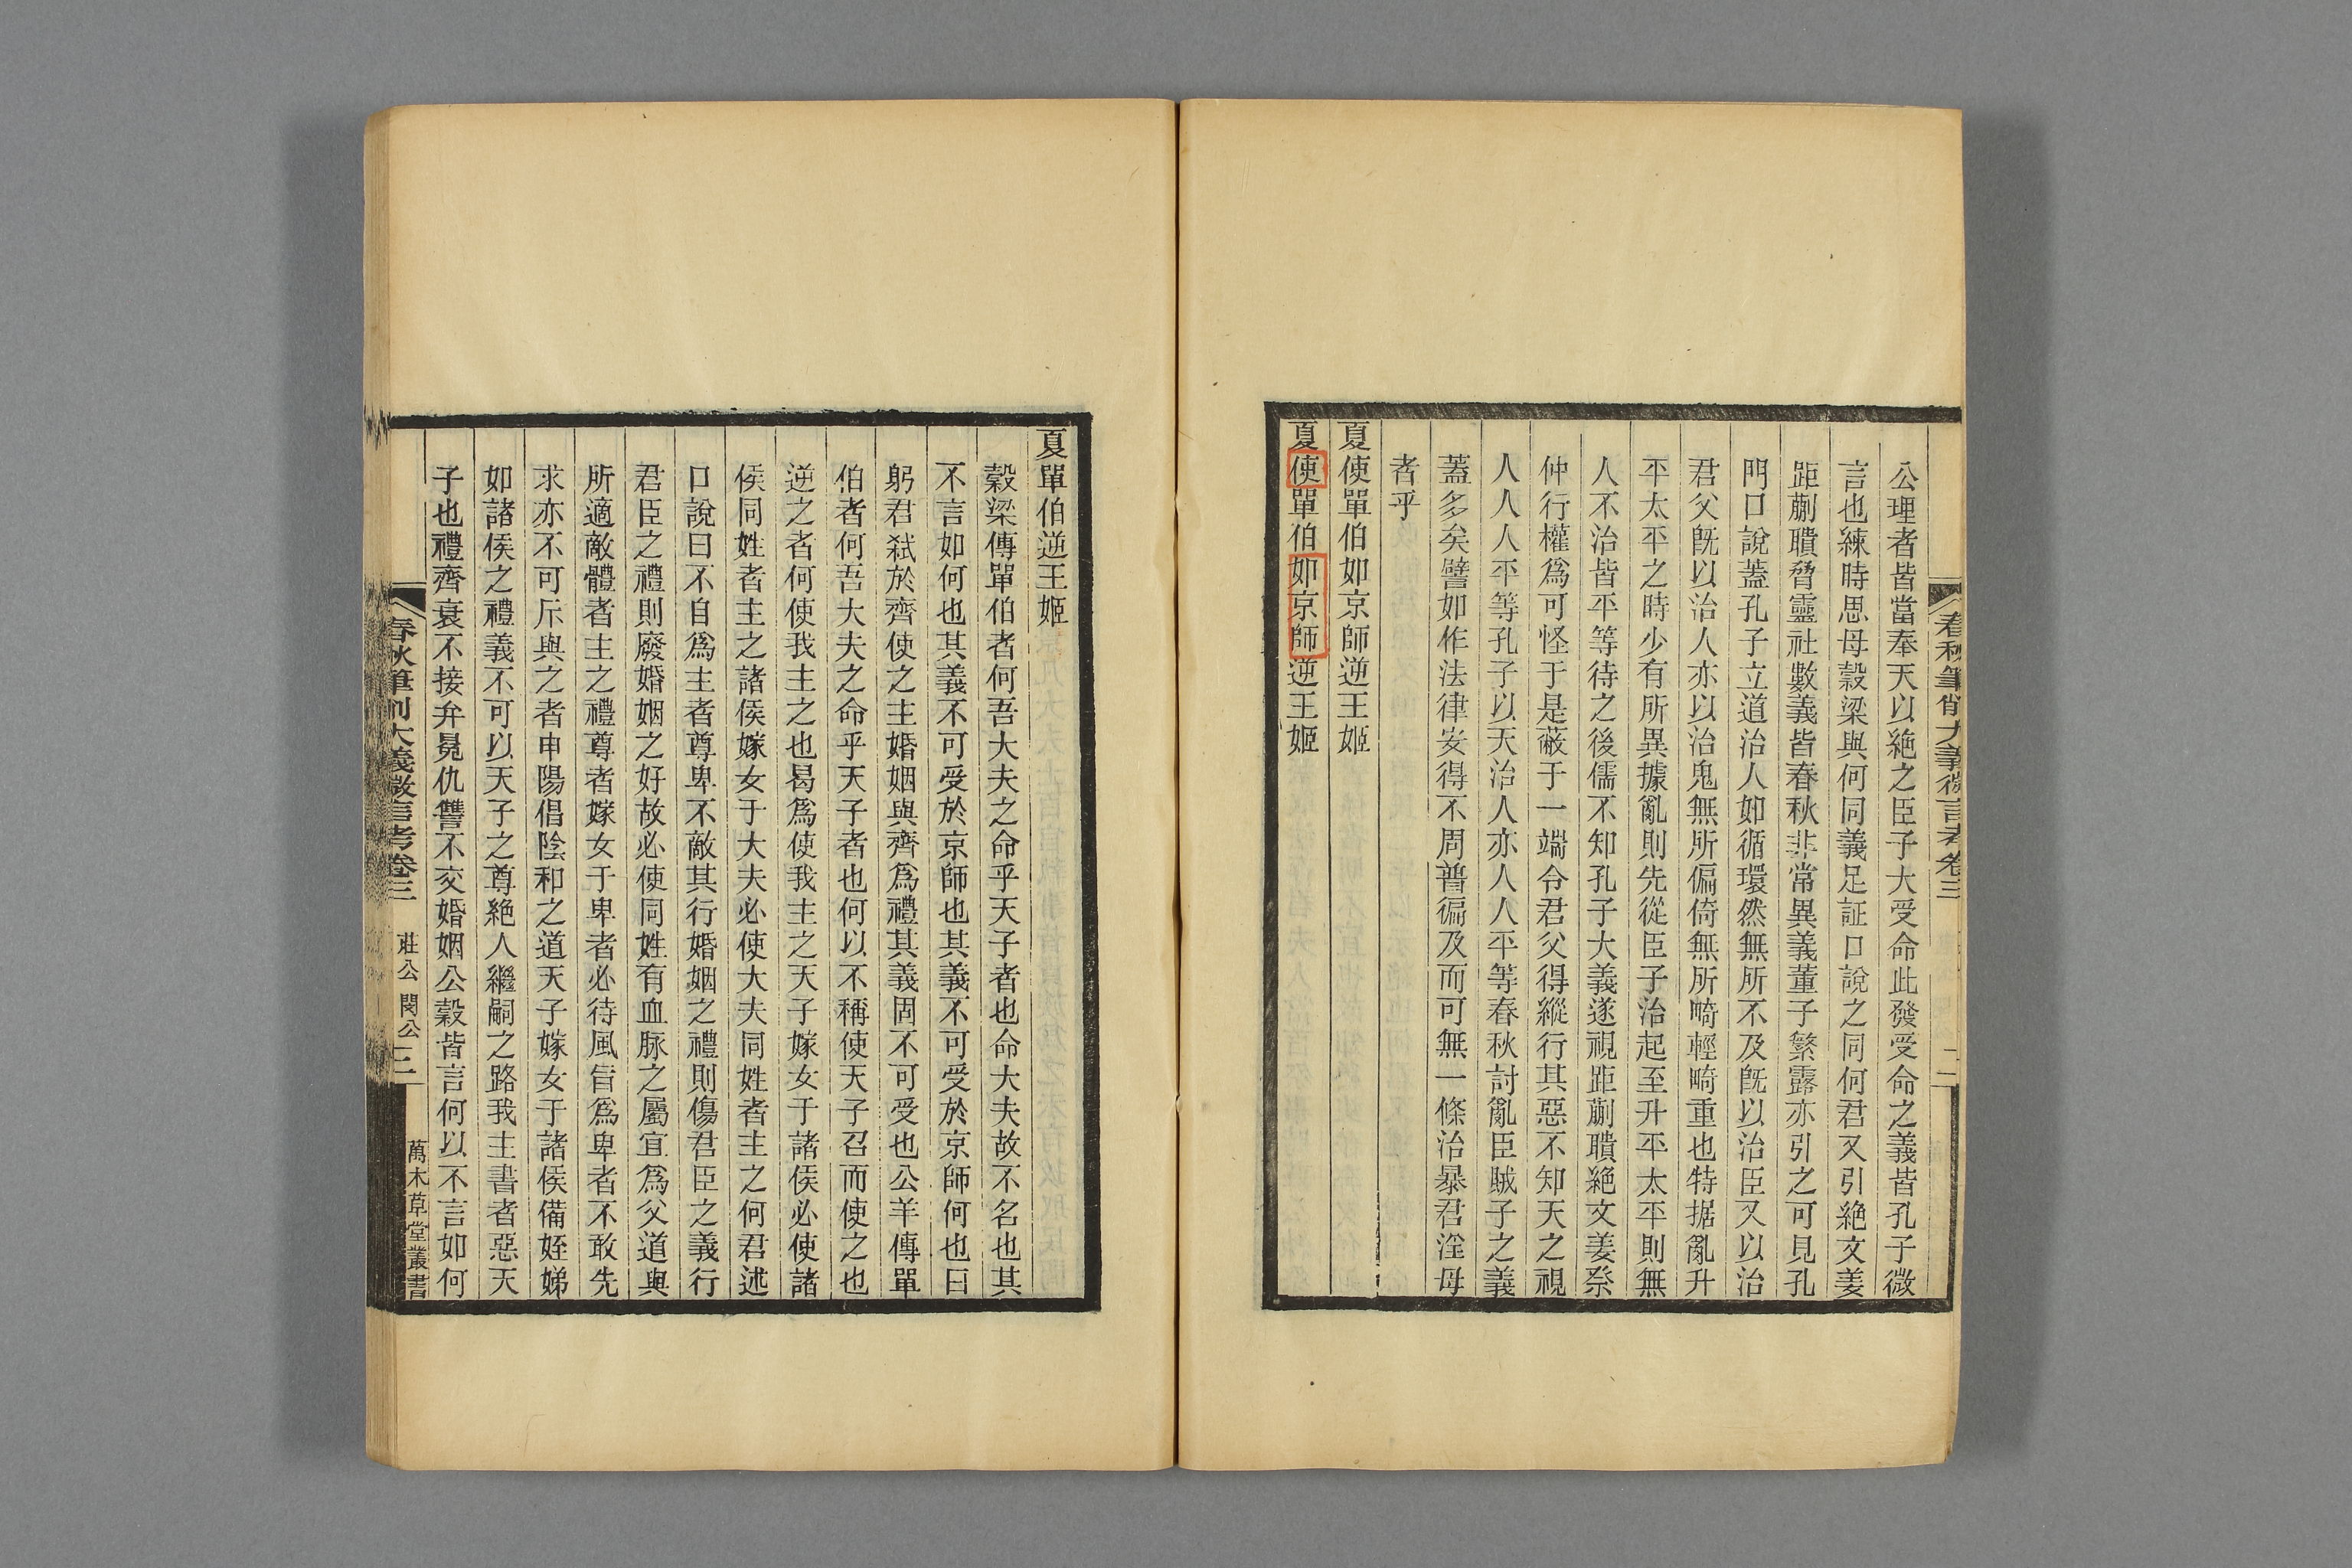 春秋筆削大義微言考卷三
二
公理者皆當奉天以絶之臣子大受命此發受命之義皆孔子微
言也練時思母穀梁與何同義足証口說之同何君又引絶文姜
距蒯聵脅靈社數義皆春秋非常異義董子繁露亦引之可見孔
門口說蓋孔子立道治人如循環然無所不及旣以治臣又以治
君父旣以治人亦以治鬼無所偏倚無所畸輕畸重也特据亂升
平太平之時少有所異據亂則先從臣子治起至升平太平則無
人不治皆平等待之後儒不知孔子大義遂視距蒯聵絶文姜祭
仲行權爲可怪于是蔽于一端令君父得縱行其惡不知天之視
人人人平等孔子以天治人亦人人平等春秋討亂臣賊子之義
蓋多矣譬如作法律安得不周普徧及而可無一條治暴君淫母
者乎
夏使單伯如京師逆王姬
夏使單伯如京師逆王姬
夏單伯逆王姬
穀梁傳單伯者何吾大夫之命乎天子者也命大夫故不名也其
不言如何也其義不可受於京師也其義不可受於京師何也曰
躬君弑於齊使之主婚姻與齊爲禮其義固不可受也公羊傳單
伯者何吾大夫之命乎天子者也何以不稱使天子召而使之也
逆之者何使我主之也曷爲使我主之天子嫁女于諸侯必使諸
侯同姓者主之諸侯嫁女于大夫必使大夫同姓者主之何君述
口說曰不自爲主者尊卑不敵其行婚姻之禮則傷君臣之義行
君臣之禮則廢婚姻之好故必使同姓有血脉之屬宜爲父道與
所適敵體者主之禮尊者嫁女于卑者必待風旨爲卑者不敢先
求亦不可斥與之者申陽倡陰和之道天子嫁女于諸侯備姪娣
如諸侯之禮義不可以天子之尊絶人繼嗣之路我主書者惡天
子也禮齊衰不接弁冕仇讐不交婚姻公穀皆言何以不言如何
春秋筆削大義微言考卷三
莊公 閔公
三
萬木草堂叢書